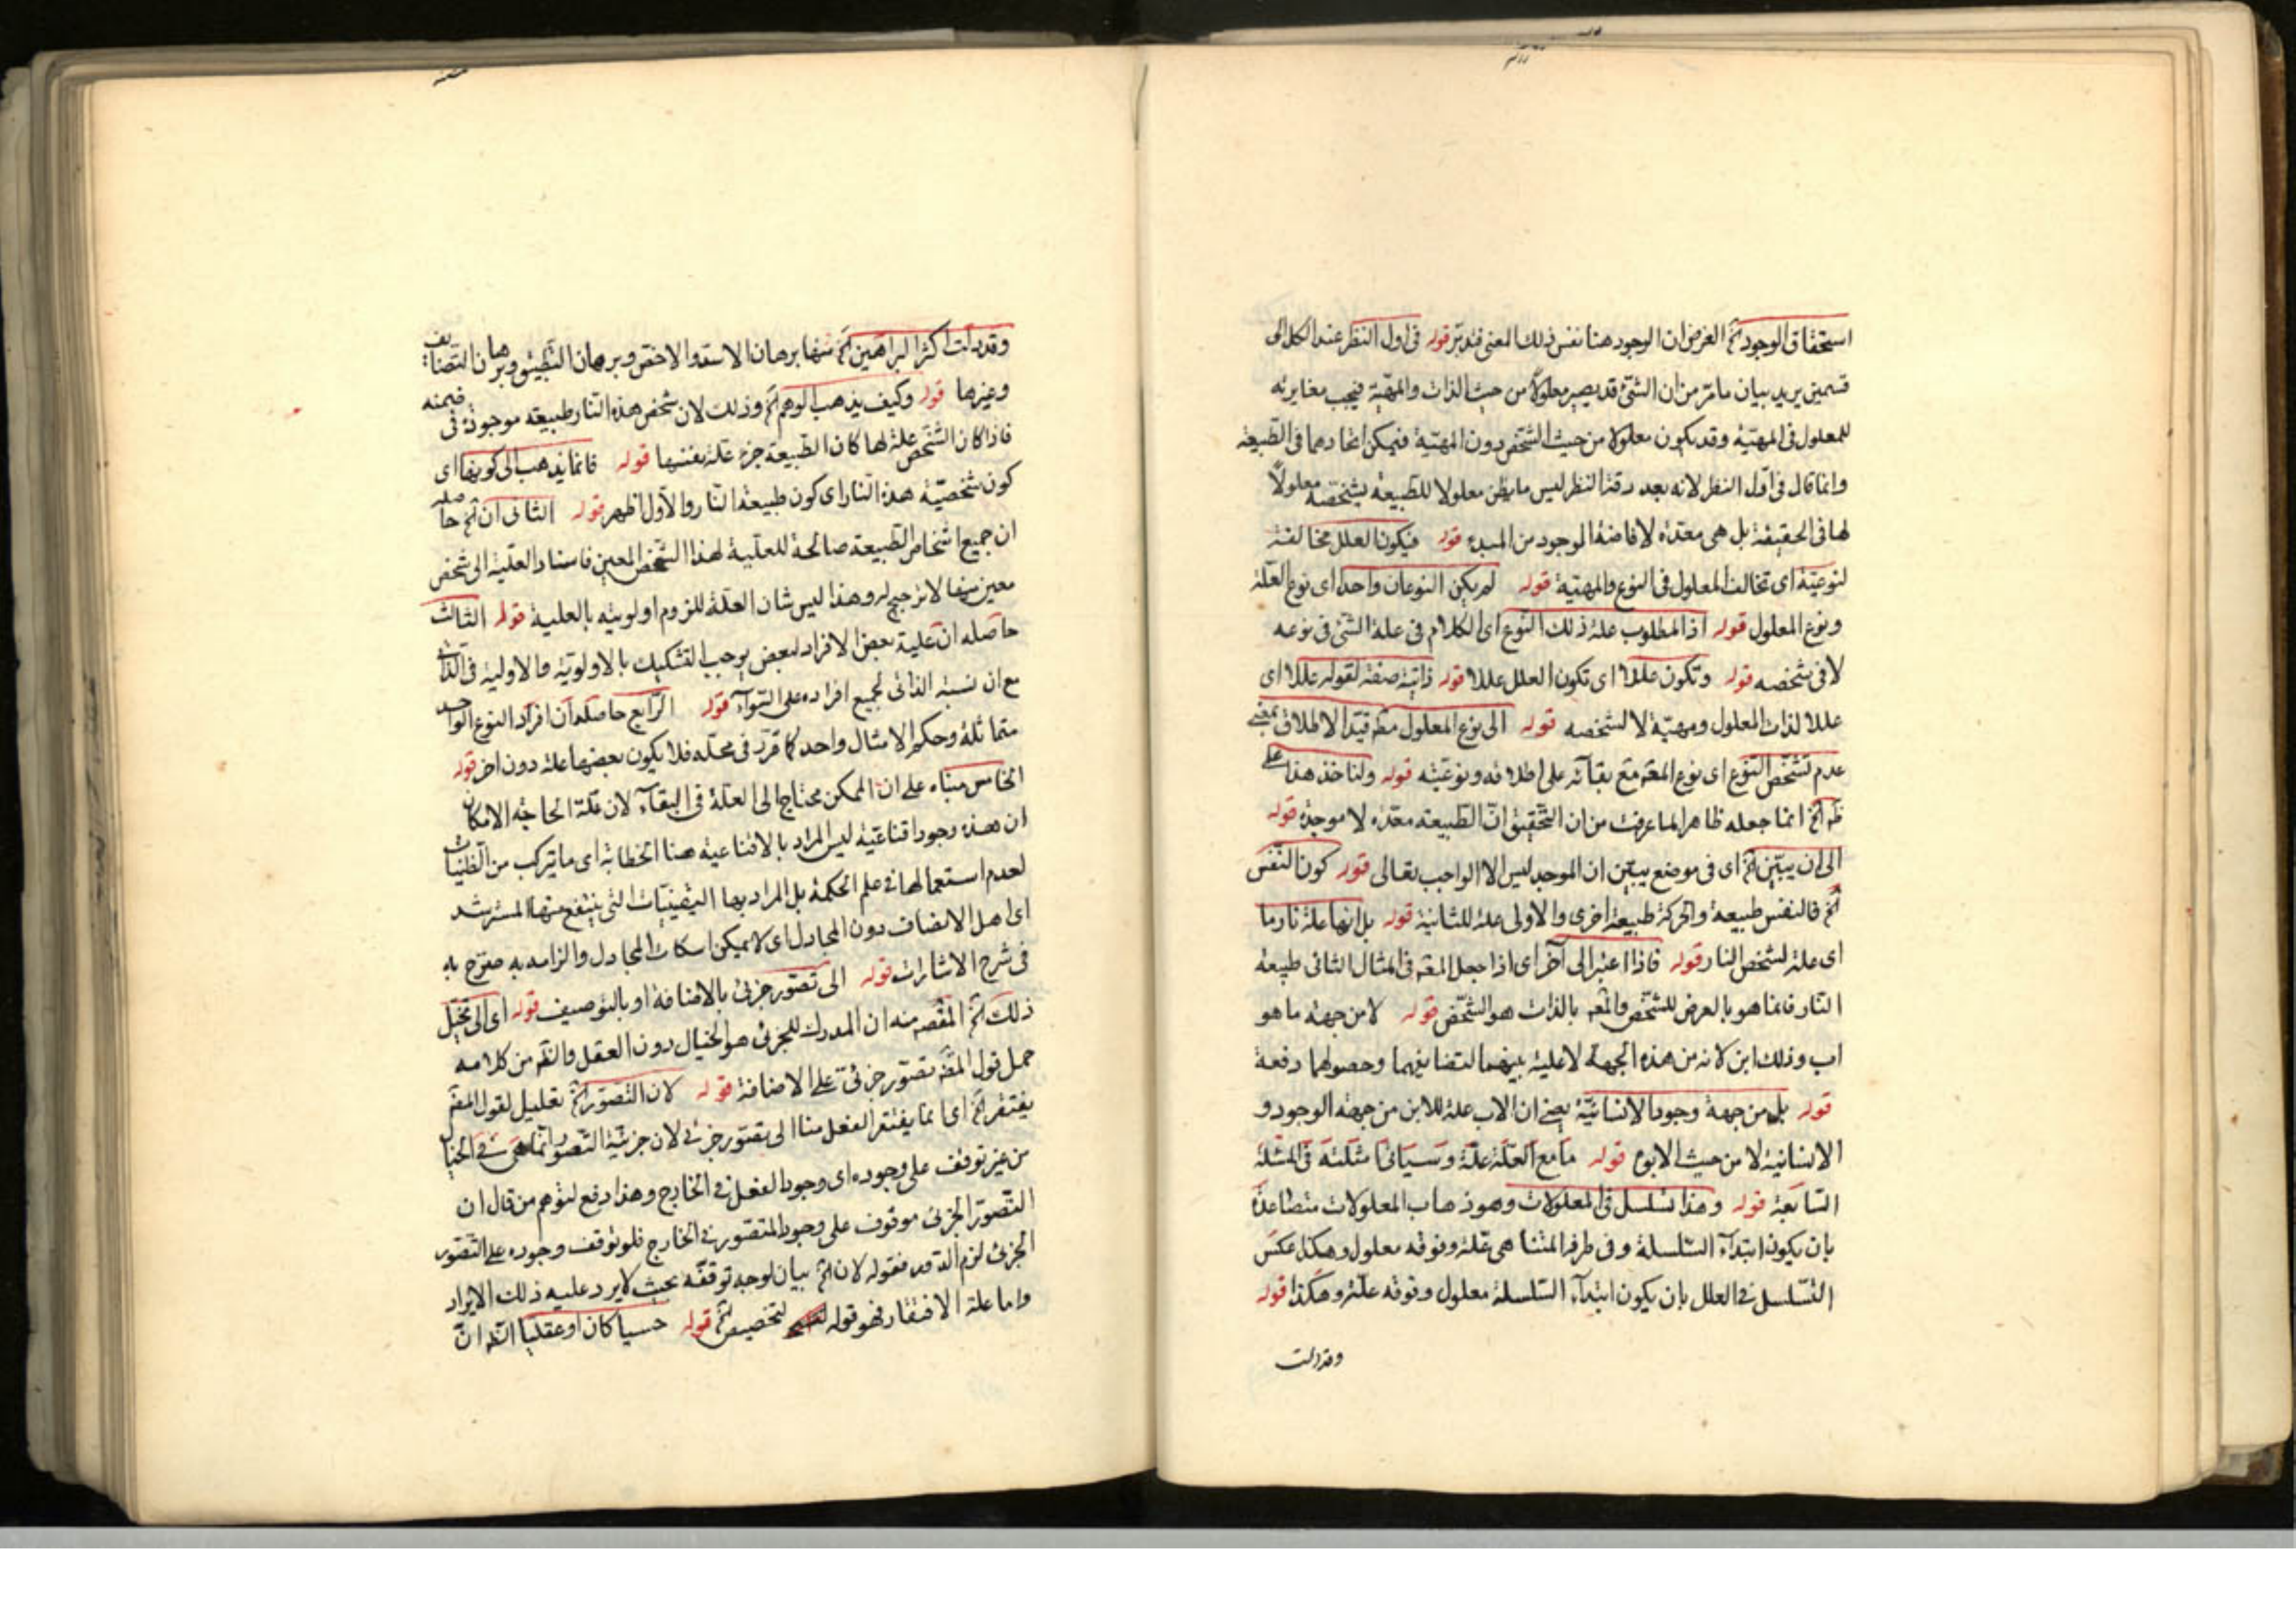 استحقاق الوجود الخ الغرض ان الوجود هنا نفس ذلك المعنى فتدبر قوله فى اول النظر عند الكل الى
قسمين يريد بيان ما مر من ان الشئ قد يصير معلولا من حيث الذات والمهية فيجب مغايرته
للمعلول فى المهية وقد يكون معلولا من حيث الشخص دون المهية فيمكن اتحادهما فى الطبيعة
وانما قال فى اول النظر لانه بعد دقة النظر ليس ما يظن معلولا للطبيعة بشخصه معلولاً
لها فى الحقيقة بل هى معدة لافاضة الموجود من المبدء قوله فيكون العلل مخالفة
لنوعية اى تخالف المعلول فى النوع والمهية قوله لم يكن النوعان واحدا اى نوع العلة
ونوع المعلول قوله اذ المطلوب علة ذلك النوع اى الكلام فى علة الشئ فى نوعه
لا فى شخصه قوله وتكون عللا اى تكون العلل عللا قوله ذاتية صفة لقوله عللا اى
عللا لذات المعلول ومهيته لا لشخصه قوله الى نوع المعلول مط قيد الاطلاق بمعنى
عدم تشخص النوع اى نوع المعلول مع بقائه على اطلاقه ونوعيته قوله ولناخذ هذا على
ظ الخ انما جعله ظاهرا لما عرفت من ان التحقيق ان الطبيعة معدة لا موجدة قوله
الى ان يبين الخ اى فى موضع يبين ان الموجد ليس الا الواجب تعالى قوله كون النفس
الخ فالنفس طبيعة والحركة طبيعة اخرى والاولى علة للثانية قوله بل انها علة نار ما
اى علة لشخص النار قوله فاذا اعتبر الى آخر اى اذا جعل المع فى المثال الثانى طبيعة
النار فانما هو بالعرض للشخص والمع بالذات هو الشخص قوله لا من جهة ما هو
اب وذلك ابن لانه من هذه الجهة لا علية بينهما لتضايفهما وحصولهما دفعة
قوله بل من جهة وجود الانسانية يعنى ان الاب علة للابن من جهة الوجود و
الانسانية لا من حيث الابوة قوله ما مع العلة علة وسيانى مثلته فى المثلة
السابعة قوله وهذا تسلسل فى المعلولات وهو ذهاب المعلولات متصاعدة
بان يكون ابتداء السلسلة وفى طرفه المتناهى علة وفوقه معلول وهكذا عكس
التسلسل فى العلل بان يكون ابتداء السلسلة معلول وفوقه علة وهكذا قوله
وقد دلت
وقد دلت اكثر البراهين الخ منها برهان الاسد والاخص وبرهان التطبيق وبرهان التضايف
وغيرها قوله وكيف يذهب الوهم الخ وذلك لان شخص هذه النار طبيعته موجودة فى ضمنه
فاذا كان الشخص علة لها كان الطبيعة جزء علة بنفسها قوله فانما يذهب الى كونها اى
كون شخصية هذه النار اى كون طبيعة النار والاول اظهر قوله الثانى ان الخ حاصله
ان جميع اشخاص الطبيعة صالحة للعلية لهذا الشخص المعين فاسناد العلية الى شخص
معين منها لا ترجيح له وهذا ليس شان العلة للزوم اولويته بالعلية قوله الثالث
حاصله ان علية بعض الافراد لبعض يوجب التشكيك بالاولوية والاولية فى الذاتى
مع ان نسبة الذاتى لجميع افراده على السواء قوله الرابع حاصله ان افراد النوع الواحد
متماثلة وحكم الامثال واحد كما قرر فى محله فلا يكون بعضها علة دون اخر قوله
الخامس مبناه على ان الممكن محتاج الى العلة فى البقاء لان علة الحاجة الامكان
ان هذه وجود اقناعية ليس المراد بالاقناعية هنا الخطابة اى ما يتركب من الظنيات
لعدم استعمالها فى علم الحكمة بل المراد بها اليقينيات التى ينتفع منها المسترشد
اى اهل الانصاف دون المجادل اى لا يمكن اسكات المجادل والزامه به صرح به
فى شرح الاشارات قوله الى تصور جزئى بالاضافة او بالتوصيف قوله اى الى تخيل
ذلك الخ المقصه منه ان المدرك للجزئى هو الخيال دون العقل والظ من كلامه
حمل قول المص بتصور جزئى على الاضافة قوله لان التصور الخ تعليل لقول المص
يفتقر الخ اى انما يفتقر الفعل منا الى تصور جزئى لان جزئية التصور انما هى فى الخيال
من غير توقف على وجوده اى وجود الفعل فى الخارج وهذا دفع لتوهم من قال ان
التصور الجزئى موقوف على وجود المتصور فى الخارج فلو توقف وجوده على التصور
الجزئى لزم الدور فقوله لان الخ بيان لوجه توقفه بحيث لا يرد عليه ذلك الايراد
واما علة الافتقار فهو قوله لتخصيص الخ قوله حسيا كان او عقليا الظ ان